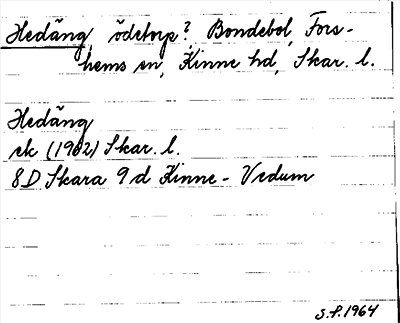 Hedäng, ödetorp?, Bondebol, Fors-
hems sn, Kinne hd, Skar. l.
Hedäng
ek (1962) Skar. l.
8D Skara 9d Kinne-Vedum
S.F. 1964